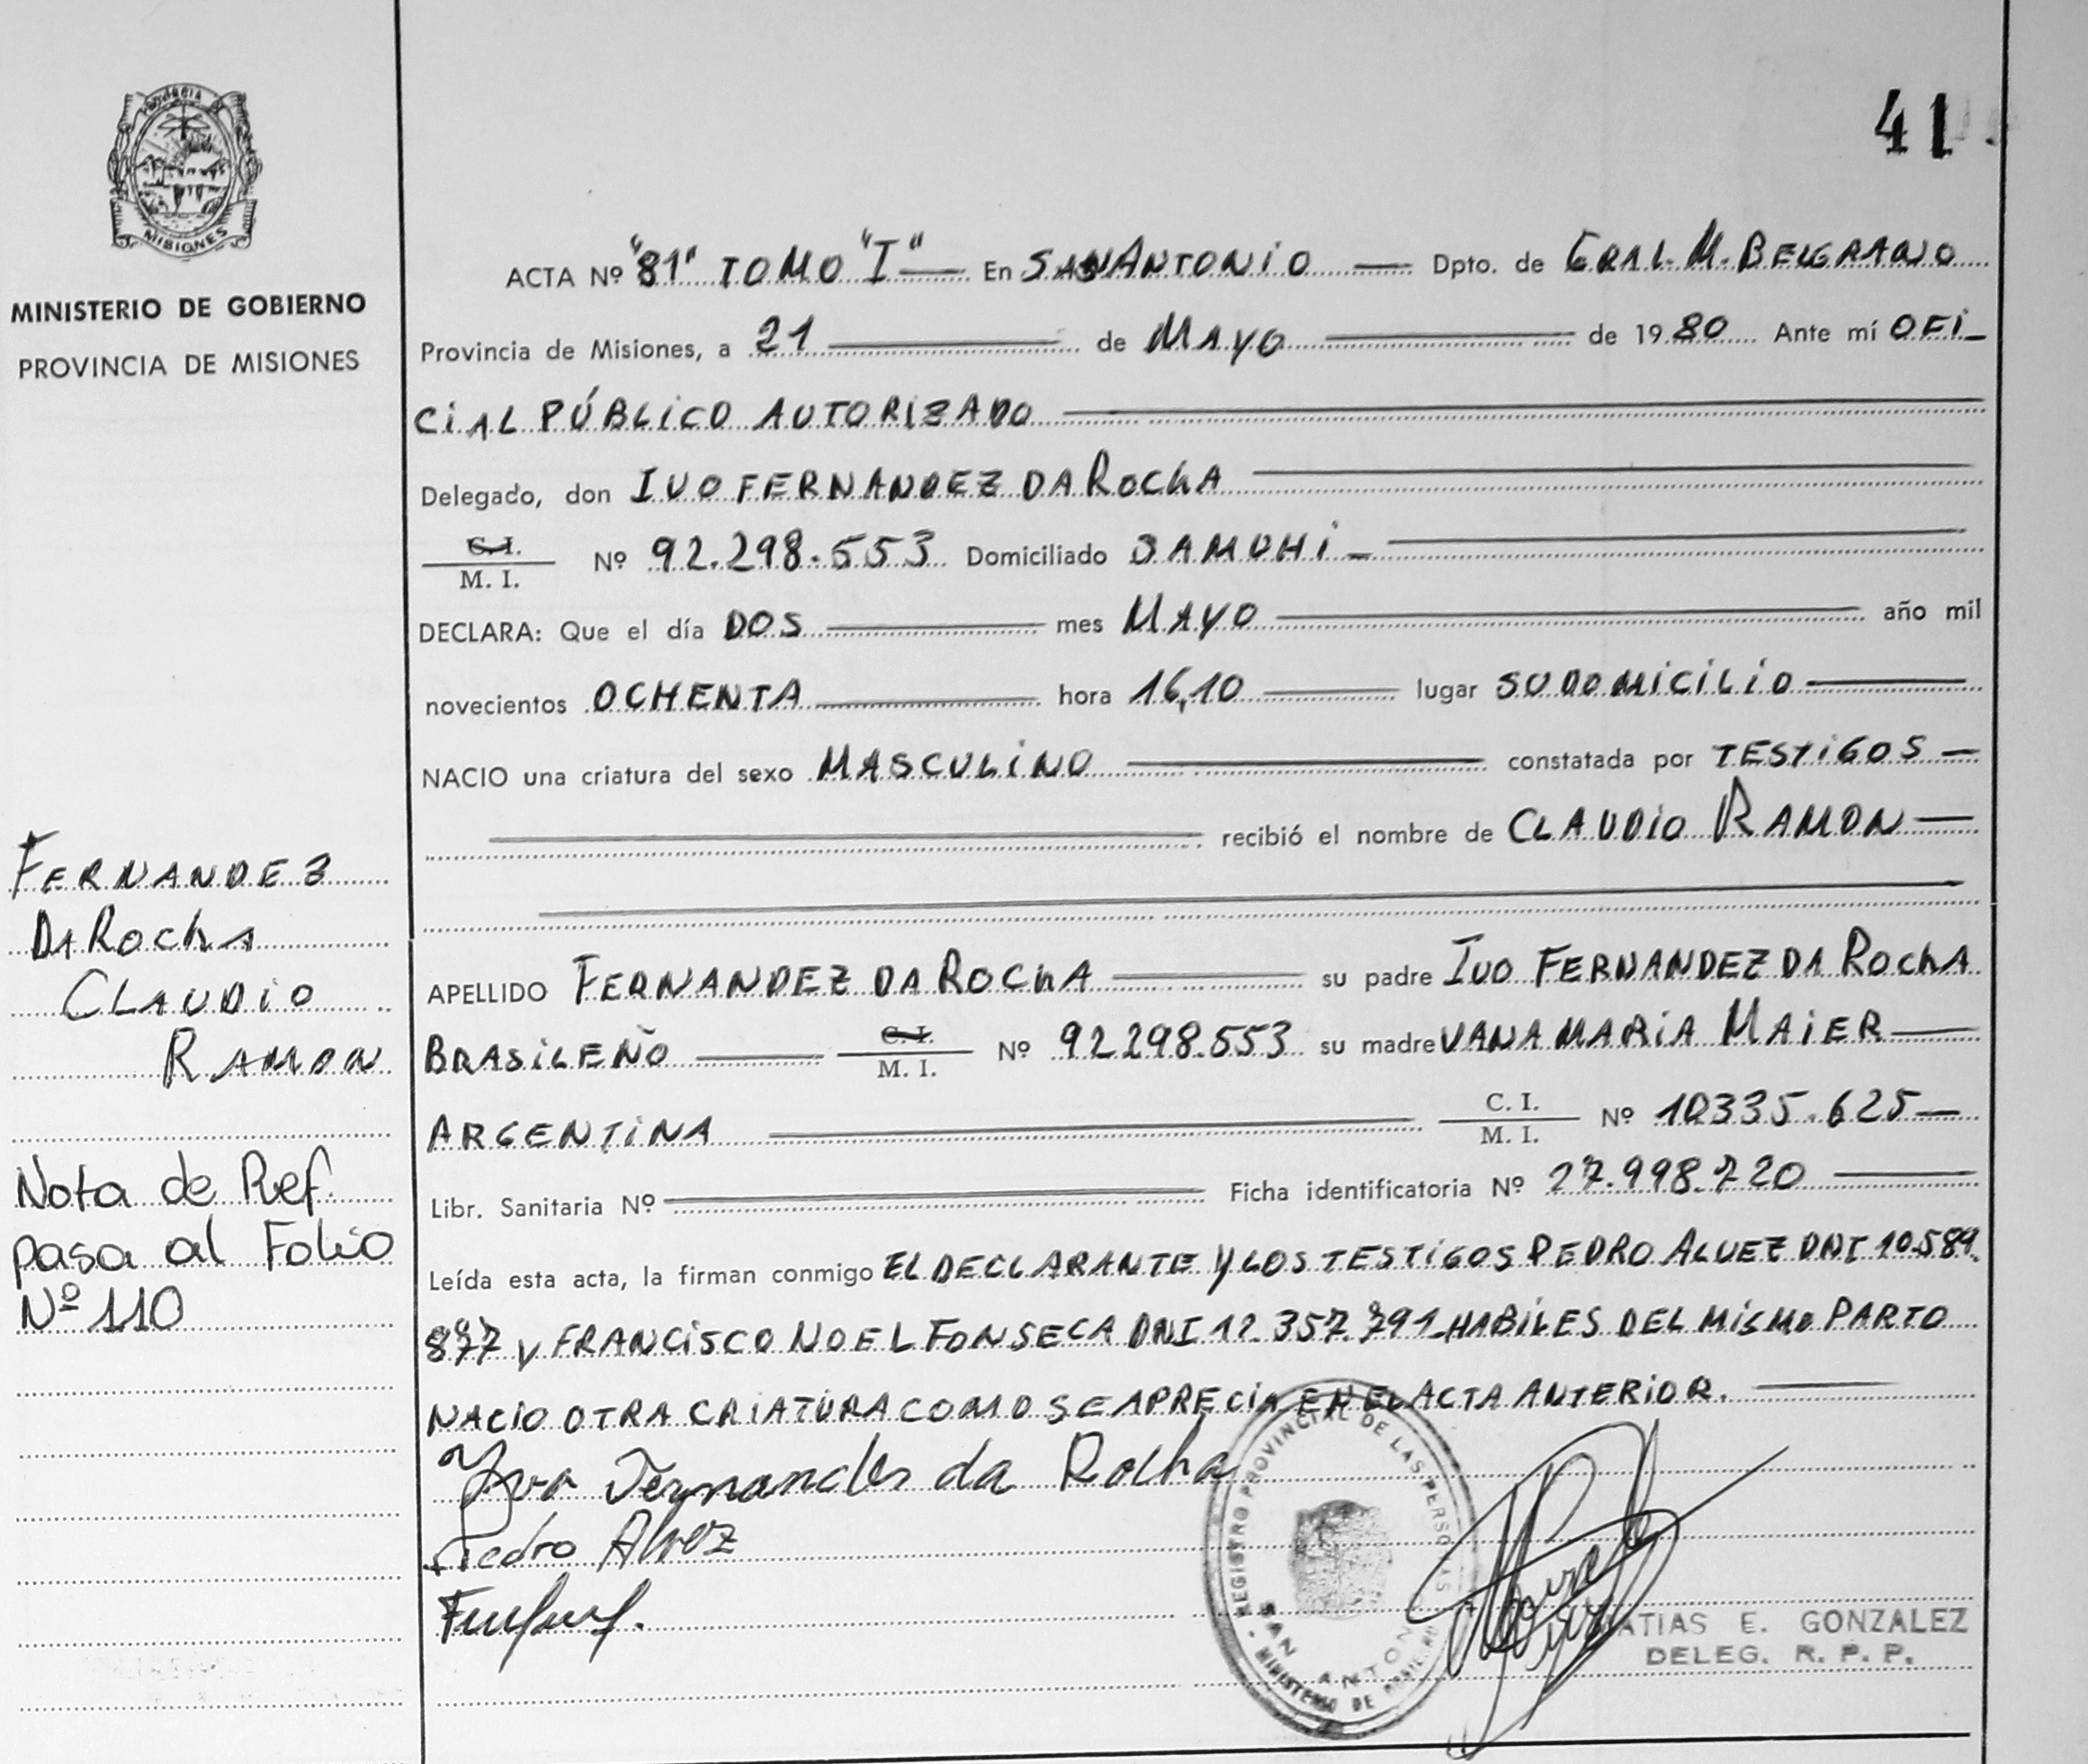 41
PROVINCIA
MISIONES
MINISTERIO DE GOBIERNO
PROVINCIA DE MISIONES
FERNANDEZ
DA ROCHA
CLAUDIO
RAMON
Nota de Ref.
pasa al Folio
Nº 110
ACTA Nº "81" TOMO "I" En SAN ANTONIO Dpto. de GRAL. M. BELGRANO
Provincia de Misiones, a 21 de MAYO de 1980 Ante mí OFI-
CIAL PÚBLICO AUTORIZADO
Delegado, don IVO FERNANDEZ DA ROCHA
C. I. / M. I. Nº 92.298.553 Domiciliado SAMOHI
DECLARA: Que el día DOS mes MAYO año mil
novecientos OCHENTA hora 16,10 lugar SU DOMICILIO
NACIO una criatura del sexo MASCULINO constatada por TESTIGOS
recibió el nombre de CLAUDIO RAMON
APELLIDO FERNANDEZ DA ROCHA su padre IVO FERNANDEZ DA ROCHA
BRASILEÑO C. I. / M. I. Nº 92298.553 su madre VANA MARIA MAIER
ARGENTINA C. I. / M. I. Nº 10335.625
Libr. Sanitaria Nº Ficha identificatoria Nº 27.998.720
Leída esta acta, la firman conmigo EL DECLARANTE Y LOS TESTIGOS PEDRO ALVEZ DNI 10.589.
Y FRANCISCO NOEL FONSECA DNI 12.357.791 HABILES DEL MISMO PARTO
NACIO OTRA CRIATURA COMO SE APRECIA EN EL ACTA ANTERIOR.
Ivo Fernandes da Rocha
Pedro Alvez
REGISTRO PROVINCIAL DE LAS PERSONAS
SAN ANTONIO
MINISTERIO DE
MATIAS E. GONZALEZ
DELEG. R. P. P.